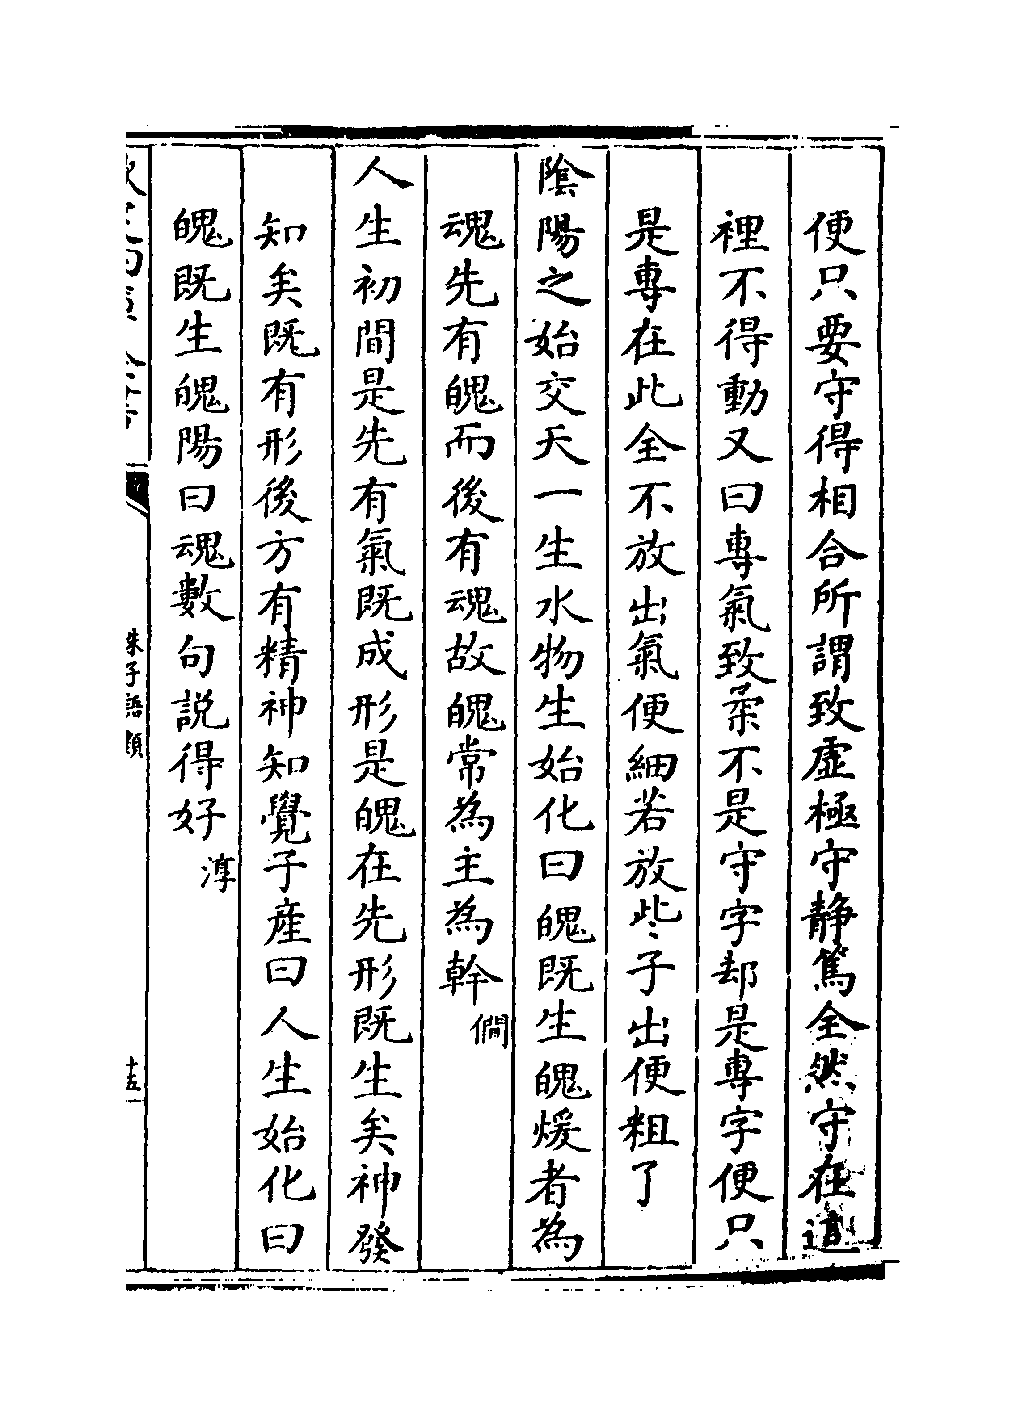 便只要守得相合所謂致虛極守静篤全然守在這
裡不得動又曰專氣致柔不是守字却是專字便只
是專在此全不放出氣便細若放些子出便粗了
陰陽之始交天一生水物生始化曰魄既生魄煖者為
魂先有魄而後有魂故魄常為主為幹 僩
人生初間是先有氣既成形是魄在先形既生矣神發
知矣既有形後方有精神知覺子産曰人生始化曰
魄既生魄陽曰魂數句説得好 淳
朱子語類
十五